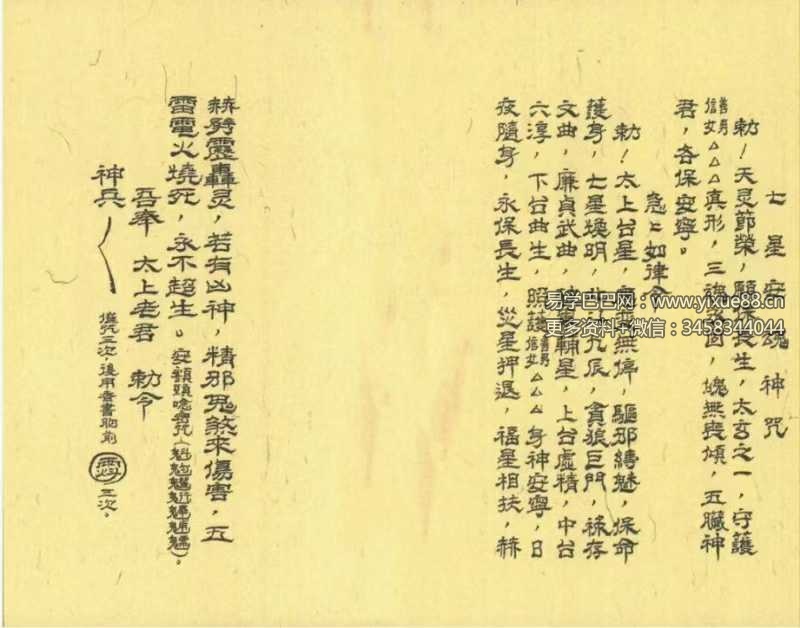 七星安魂神咒
勅！天灵節榮，願保長生，太玄之一，守護
善男信女△△△真形，三魂固，魄無喪傾，五臟神
君，各保安寧。
急〻如律令
勅！太上台星，無停，驅邪縛魅，保命
護身，七星煥明，北斗九辰，貪狼巨門，祿存
文曲，廉貞武曲，輔星，上台虛精，中台
六淳，下台曲生，照護善男信女△△△身神安寧，日
夜隨身，永保長生，災星押退，福星相扶，赫
赫靈轟灵，若有凶神，精邪鬼煞來傷害，五
雷電火燒死，永不超生。安額頭唸密咒（魁）。
吾奉 太上老君 勅令
神兵
咒三次，後用書胸前 三次。
易学巴巴网：www.yixue88.cn
更多资料+微信：3458344044